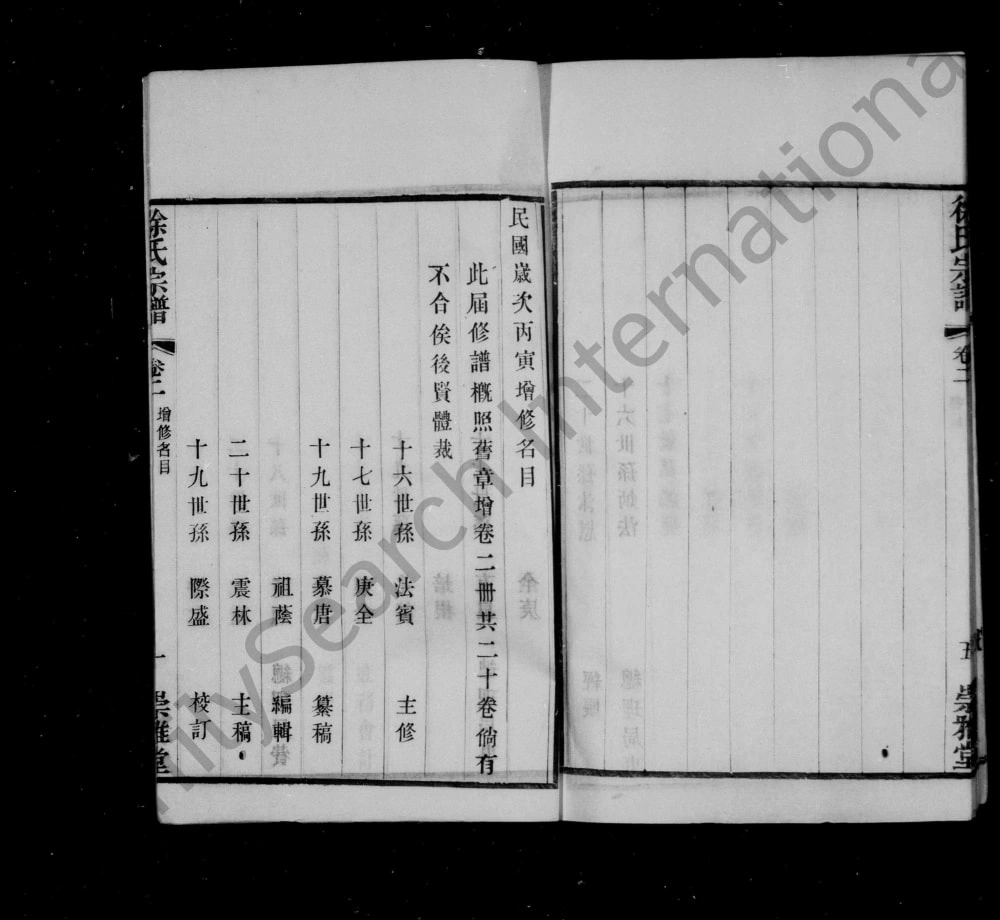 徐氏宗譜
卷二
五
崇雅堂
民國歲次丙寅增修名目
此屆修譜概照舊章增卷二冊共二十卷倘有
不合俟後賢體裁
十六世孫 法賓 主修
十七世孫 庚全
十九世孫 慕唐 纂稿
祖蔭 編輯
二十世孫 震林 主稿
十九世孫 際盛 校訂
徐氏宗譜
卷二
增修名目
一
崇雅堂
FamilySearch International